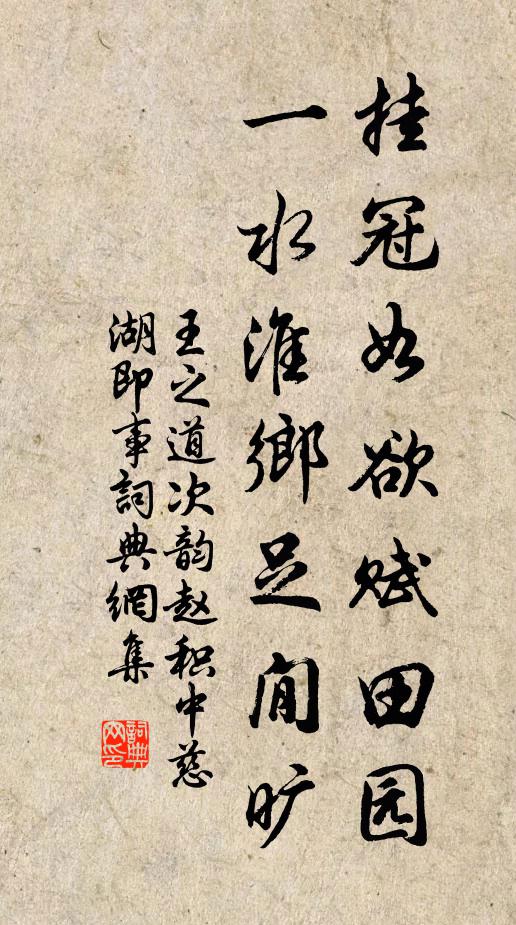 挂冠如欲赋田园
一水淮鄉足闲旷
王之道次韵赵积中慈
湖即事詞典網集
詞典
网印